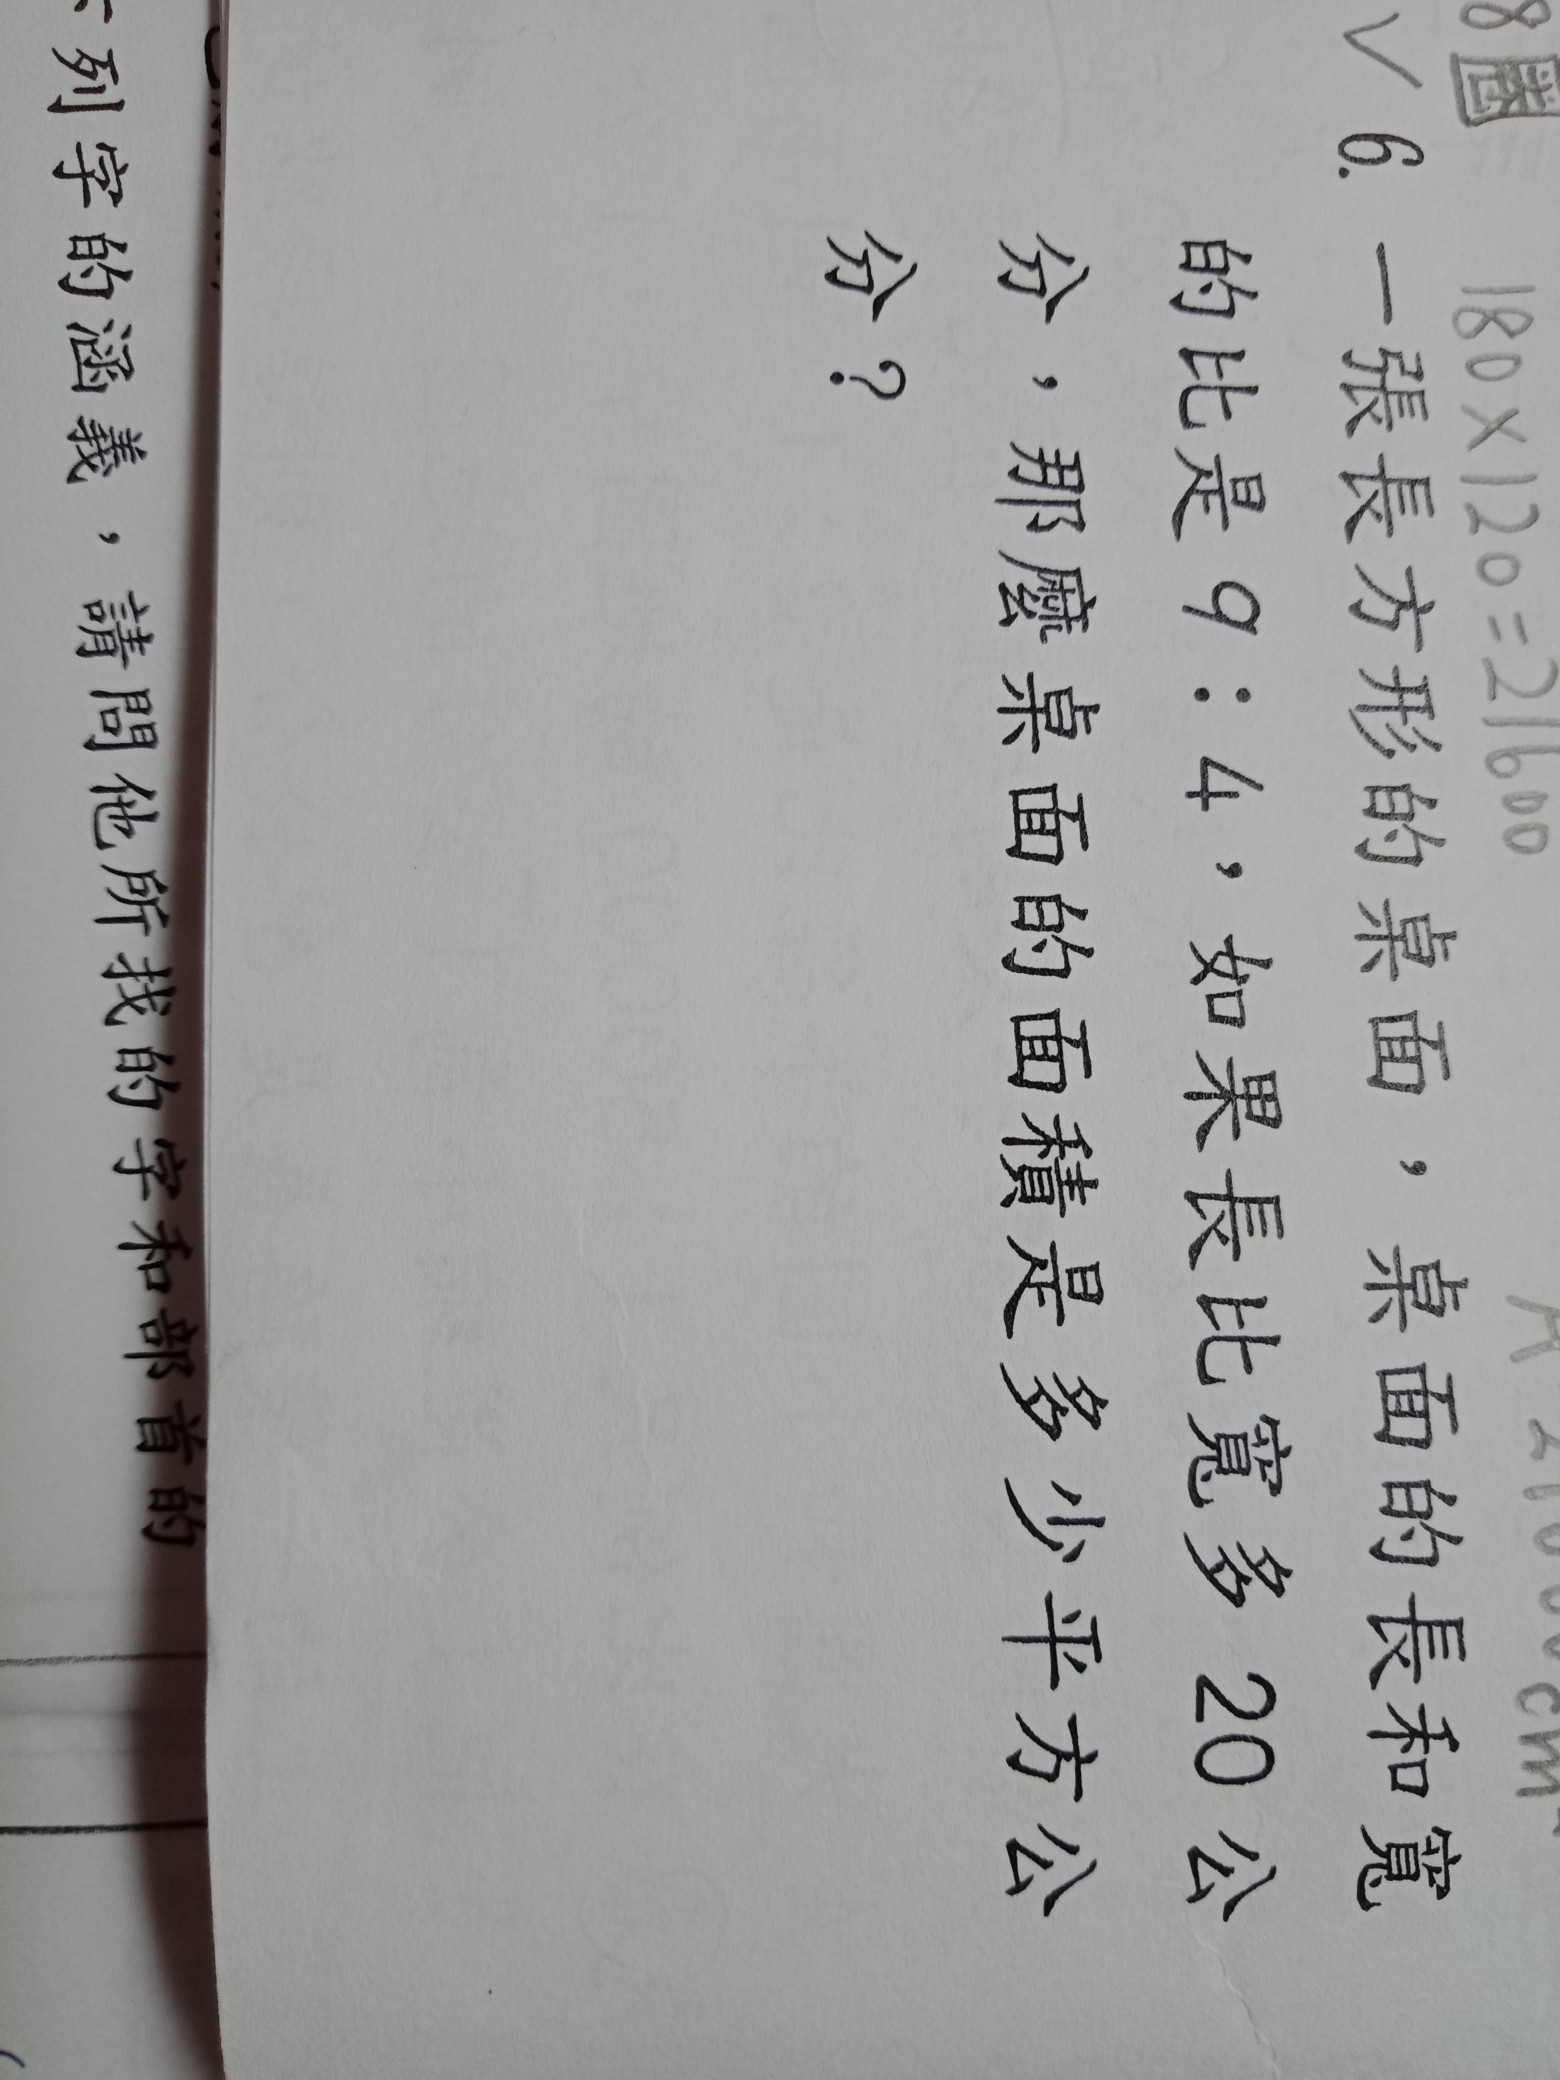 180×120=21600
✓ 6. 一張長方形的桌面，桌面的長和寬
的比是9：4，如果長比寬多20公
分，那麼桌面的面積是多少平方公
分？
列字的涵義，請問他所找的字和部首的